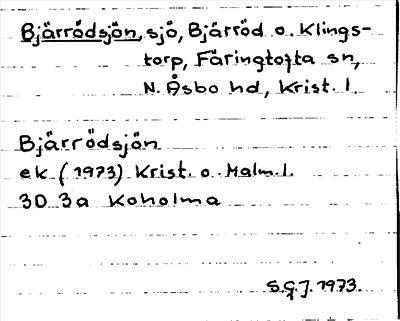 Bjärrödsjön, sjö, Bjärröd o. Klings-
torp, Färingtofta sn,
N. Åsbo hd, Krist. l.
Bjärrödsjön
ek (1973) Krist. o. Malm. l.
3D 3a Koholma
S.G.J. 1973.